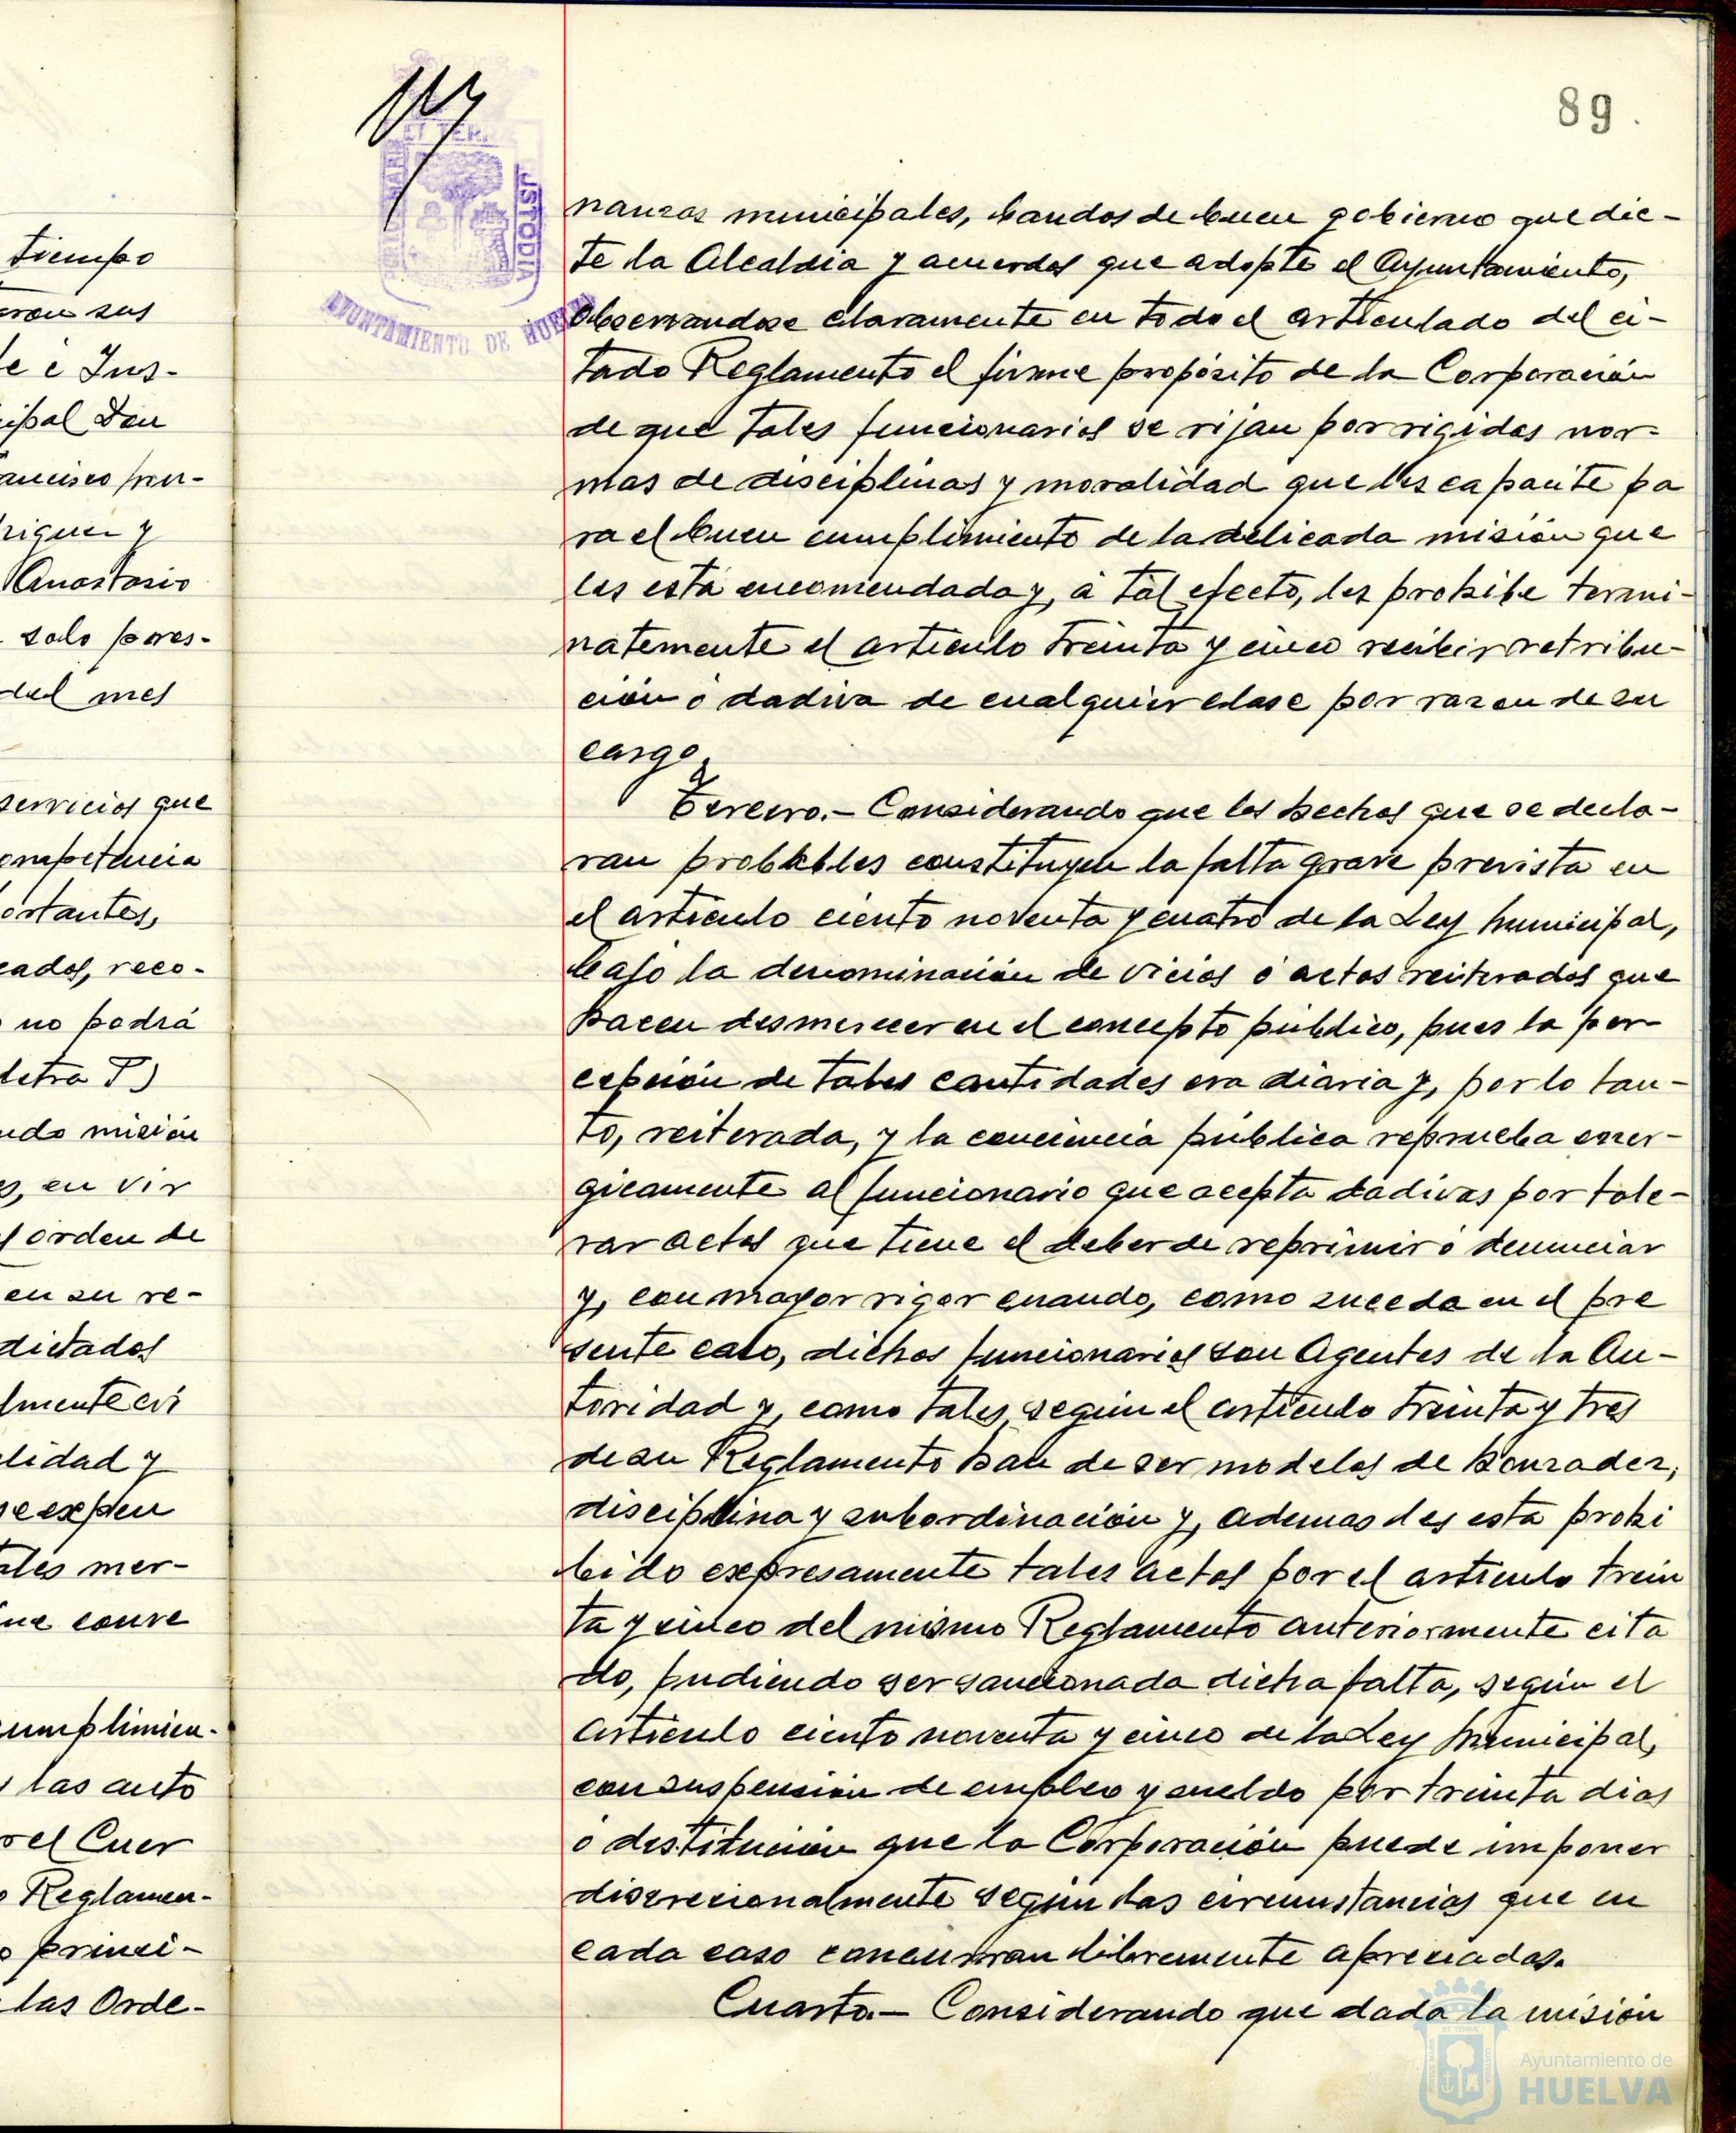 tiempo
sus
e é Ins-
cipal Don
ancisco
riguez y
Anastasio
solo pares-
del mes
servicios que
ompetencia
ortantes,
cados, reco-
no podrá
letra T)
ndo misión
en vir
orden de
en su re-
dictados
lmente ci
lidad y
se expen
ales mer-
que conve
umplimien-
las auto
el Cuer
Reglamen-
princi-
las Orde-
89.
ET TERR
USTODIA
AYUNTAMIENTO DE HUELVA
nanzas municipales, bandos de buen gobierno que dic-
te la Alcaldia y acuerdos que adopte el Ayuntamiento,
observandose claramente en todo el articulado del ci-
tado Reglamento el firme propósito de la Corporación
de que tales funcionarios se rijan por rigidas nor-
mas de disciplinas y moralidad que les capacite pa
ra el buen cumplimiento de la delicada misión que
les está encomendada y, á tal efecto, les prohibe termi-
natemente el articulo treinta y cinco recibir retribu-
ción ó dadiva de cualquier clase por razon de su
cargo.
Tercero.- Considerando que los hechos que se decla-
ran probables constituyen la falta grave prevista en
el articulo ciento noventa y cuatro de la Ley Municipal,
bajo la denominación de vicios ó actos reiterados que
hacen desmerecer en el concepto público, pues la per-
cepción de tales cantidades era diaria y, por lo tan-
to, reiterada, y la conciencia pública reprueba ener-
gicamente al funcionario que acepta dadivas por tole-
rar actos que tiene el deber de reprimir ó denunciar
y, con mayor rigor cuando, como suceda en el pre
sente caso, dichos funcionarios son Agentes de la Au-
toridad y, como tales, según el articulo treinta y tres
de su Reglamento han de ser modelos de honradez,
disciplina y subordinación y, ademas les esta prohi
bido expresamente tales actos por el articulo trein
ta y cinco del mismo Reglamento anteriormente cita
do, pudiendo ser sancionada dicha falta, según el
articulo ciento noventa y cinco de la Ley Municipal,
con suspensión de empleo y sueldo por treinta dias
ó destitución que la Corporación puede imponer
discrecionalmente según las circunstancias que en
cada caso concurran libremente apreciadas.
Cuarto.- Considerando que dada la misión
Ayuntamiento de
HUELVA